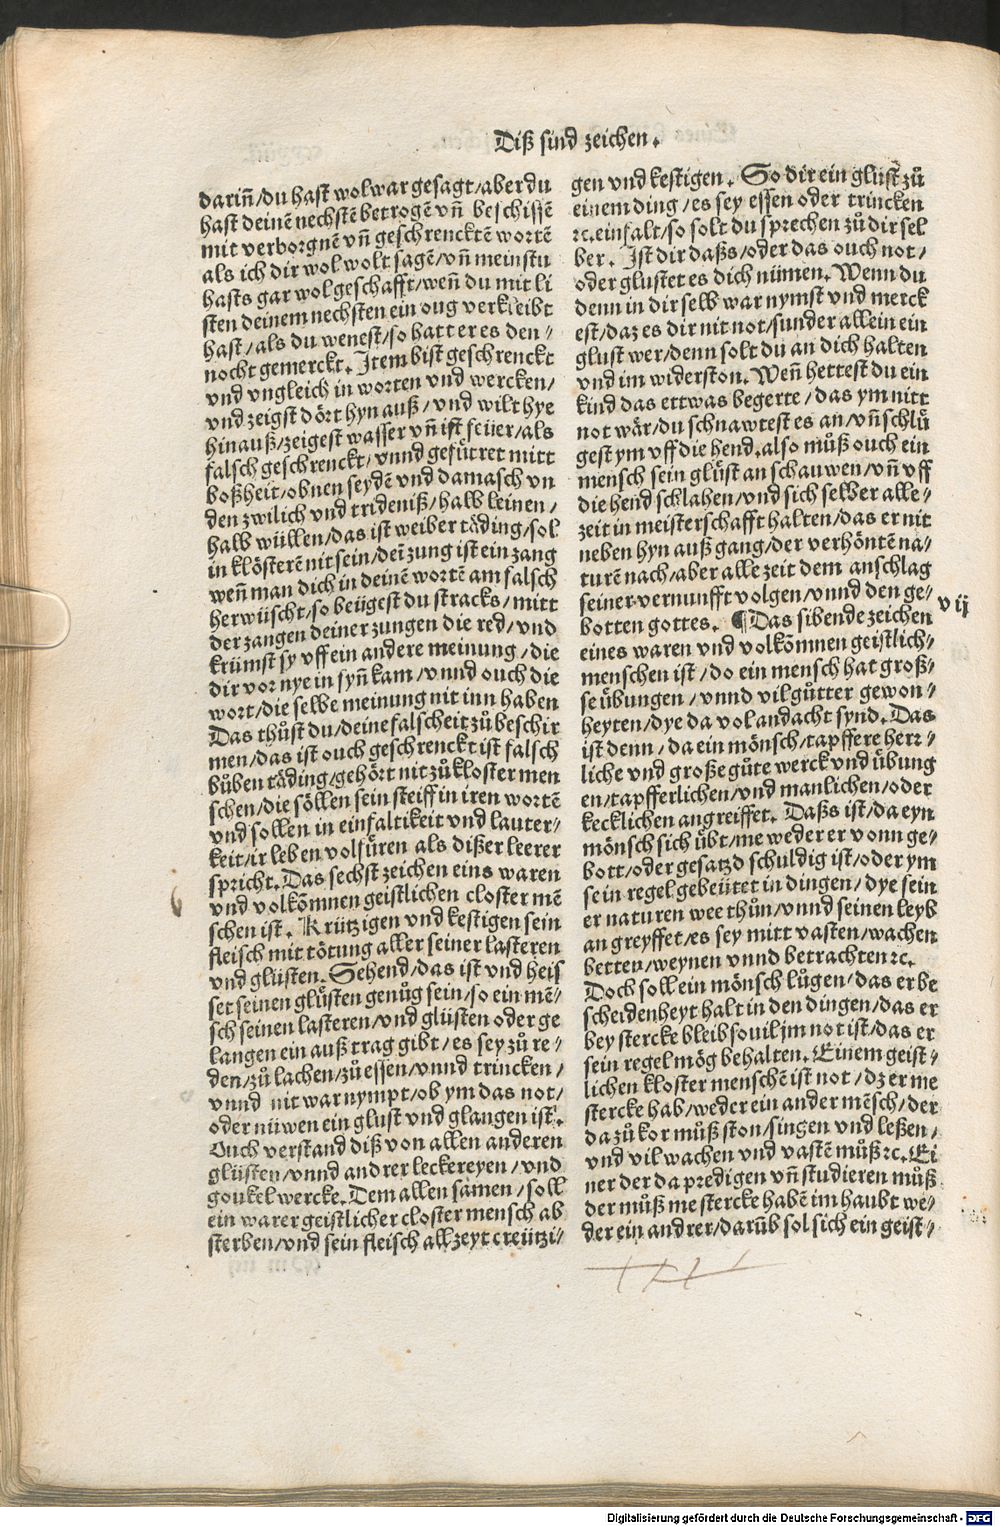 Diß sind zeichen.
darin̄/du hast wol war gesagt/aber du
hast deinē nechstē betrogē vn̄ beschissē
mit verborgnē vn̄ geschrencktē wortē
als ich dir wol wolt sagē/vn̄ meinstu
hasts gar wol geschafft/wen̄ du mit li
sten deinem nechsten ein oug verkleibt
hast/als du wenest/so hatt er es den-
nocht gemerckt. Item bist geschrenckt
vnd vngleich in worten vnd wercken/
vnd zeigst dört hyn auß/vnd wilt hye
hinauß/zeigest wasser vn̄ ist feüer/als
falsch geschrenckt/vnnd gefütret mitt
boßheit/obnen seydē vnd damasch vn
den zwilich vnd trideniß/halb leinen/
halb wüllen/das ist weiber täding/sol
in klösterē nit sein/dein̄ zung ist ein zang
wen̄ man dich in deinē wortē am falsch
herwüscht/so beügest du stracks/mitt
der zangen deiner zungen die red/vnd
krümst sy vff ein andere meinung/die
dir vor nye in syn̄ kam/vnnd ouch die
wort/die selbe meinung nit inn haben
Das thůst du/deine falscheit zů beschir
men/das ist ouch geschrenckt ist falsch
bůben täding/gehört nit zů kloster men
schen/die söllen sein steiff in iren wortē
vnd sollen in einfaltikeit vnd lauter-
keit/ir leben volfüren als dißer leerer
spricht. Das sechst zeichen eins waren
vnd volkōmnen geistlichen closter mē
schen ist. Krützigen vnd kestigen sein
fleisch mit tötung aller seiner lasteren
vnd glüsten. Sehend/das ist vnd heis
set seinen glüsten genůg sein/so ein mē-
sch seinen lasteren/vnd glüsten oder ge
langen ein auß trag gibt/es sey zů re-
den/zů lachen/zů essen/vnnd trincken/
vnnd nit war nympt/ob ym das not/
oder nüwen ein glust vnd glangen ist.
Ouch verstand diß von allen anderen
glüsten/vnnd andrer leckereyen/vnd
goukel wercke. Dem allen samen/soll
ein warer geistlicher closter mensch ab
sterben/vnd sein fleisch allzeyt creützi-
gen vnd kestigen. So dir ein glust zů
einem ding/es sey essen oder trincken
⁊c.einfalt/so solt du sprechen zů dir sel
ber. Ist dir daßs/oder das ouch not/
oder glustet es dich nümen. Wenn du
denn in dir selb war nymst vnd merck
est/daz es dir nit not/sunder allein ein
glust wer/denn solt du an dich halten
vnd im widerston. Wen̄ hettest du ein
kind das ettwas begerte/das ym nitt
not wär/du schnawtest es an/vn̄ schlů
gest ym vff die hend.also můß ouch ein
mensch sein glüst an schauwen/vn̄ vff
die hend schlahen/vnd sich selber alle-
zeit in meisterschafft halten/das er nit
neben hyn auß gang/der verhöntē na-
turē nach/aber alle zeit dem anschlag
seiner vernunfft volgen/vnnd den ge-
botten gottes. ¶Das sibende zeichen
vij
eines waren vnd volkōmnen geistlich-
menschen ist/do ein mensch hat groß-
se übungen/vnnd vil gůtter gewon-
heyten/dye da vol andacht synd. Das
ist denn/da ein mönsch/tapffere herr-
liche vnd große gůte werck vnd übung
en/tapfferlichen/vnd manlichen/oder
kecklichen angreiffet. Daßs ist/da eyn
mönsch sich übt/me weder er vonn ge-
bott/oder gesatzd schuldig ist/oder ym
sein regel gebeütet in dingen/dye sein
er naturen wee thůn/vnnd seinen leyb
an greyffet/es sey mitt vasten/wachen
betten/weynen vnnd betrachten ⁊c.
Doch soll ein mönsch lůgen/das er be
scheidenheyt halt in den dingen/das er
bey stercke bleib souil jm not ist/das er
sein regel mög behalten. Einem geist-
lichen kloster menschē ist not/dz er me
stercke hab/weder ein ander mēsch/der
da zů kor můß ston/singen vnd leßen/
vnd vil wachen vnd vastē můß ⁊c. Ei
ner der da predigen vn̄ studieren můß
der můß me stercke habē im haubt we-
der ein andrer/darüb sol sich ein geist-
Digitalisierung gefördert durch die Deutsche Forschungsgemeinschaft - DFG